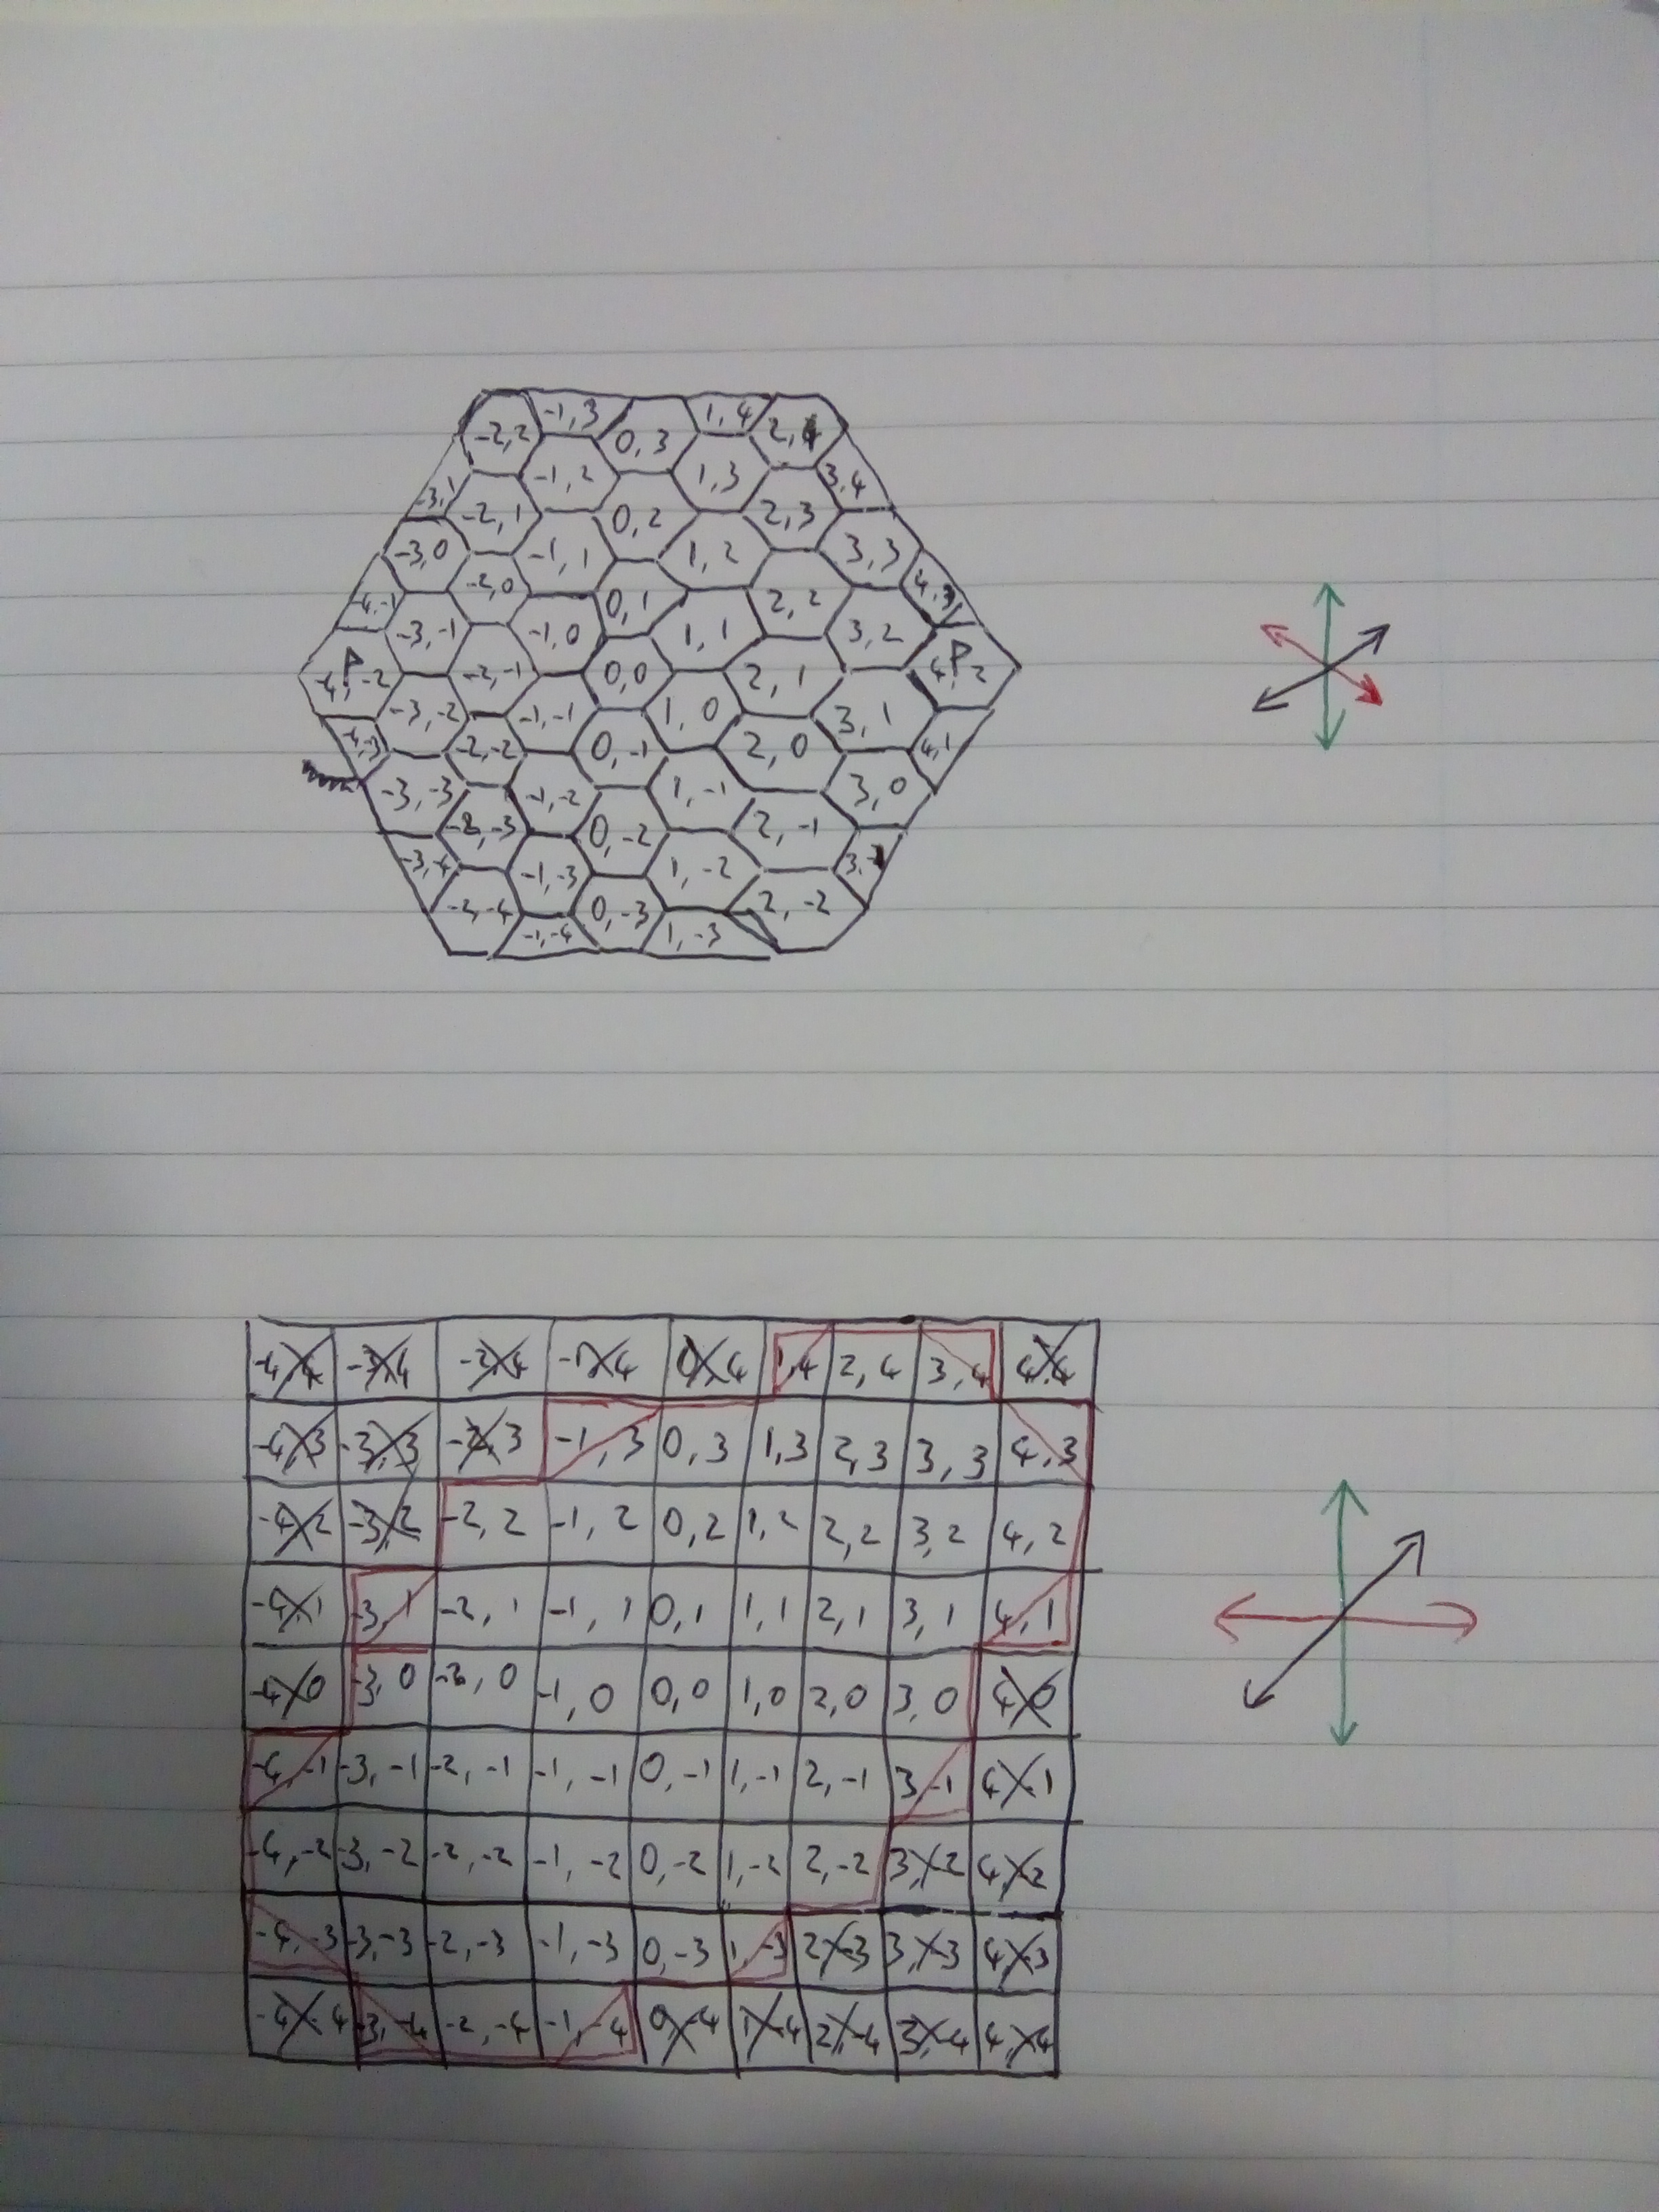 -1, 3 1, 4
-2, 2 0, 3 2, 4
-1, 2 1, 3 3, 4
-3, 1 -2, 1 0, 2 2, 3
-3, 0 -1, 1 1, 2 3, 3
-2, 0 0, 1 2, 2 4, 3
-4, -1 -3, -1 -1, 0 1, 1 3, 2
P -2, -1 0, 0 2, 1 P
-4, -2 4, 2
-3, -2 -1, -1 1, 0 3, 1
-4, -3 -2, -2 0, -1 2, 0 4, 1
-3, -3 -1, -2 1, -1 3, 0
-2, -3 0, -2 2, -1
-3, -4 -1, -3 1, -2
-2, -4 0, -3 2, -2
-1, -4 1, -3
-4, 4 -3, 4 -2, 4 -1, 4 0, 4 1, 4 2, 4 3, 4 4, 4
-4, 3 -3, 3 -2, 3 -1, 3 0, 3 1, 3 2, 3 3, 3 4, 3
-4, 2 -3, 2 -2, 2 -1, 2 0, 2 1, 2 2, 2 3, 2 4, 2
-4, 1 -3, 1 -2, 1 -1, 1 0, 1 1, 1 2, 1 3, 1 4, 1
-4, 0 -3, 0 -2, 0 -1, 0 0, 0 1, 0 2, 0 3, 0 4, 0
-4, -1 -3, -1 -2, -1 -1, -1 0, -1 1, -1 2, -1 3, -1 4, -1
-4, -2 -3, -2 -2, -2 -1, -2 0, -2 1, -2 2, -2 3, -2 4, -2
-4, -3 -3, -3 -2, -3 -1, -3 0, -3 1, -3 2, -3 3, -3 4, -3
-4, -4 -3, -4 -2, -4 -1, -4 0, -4 1, -4 2, -4 3, -4 4, -4